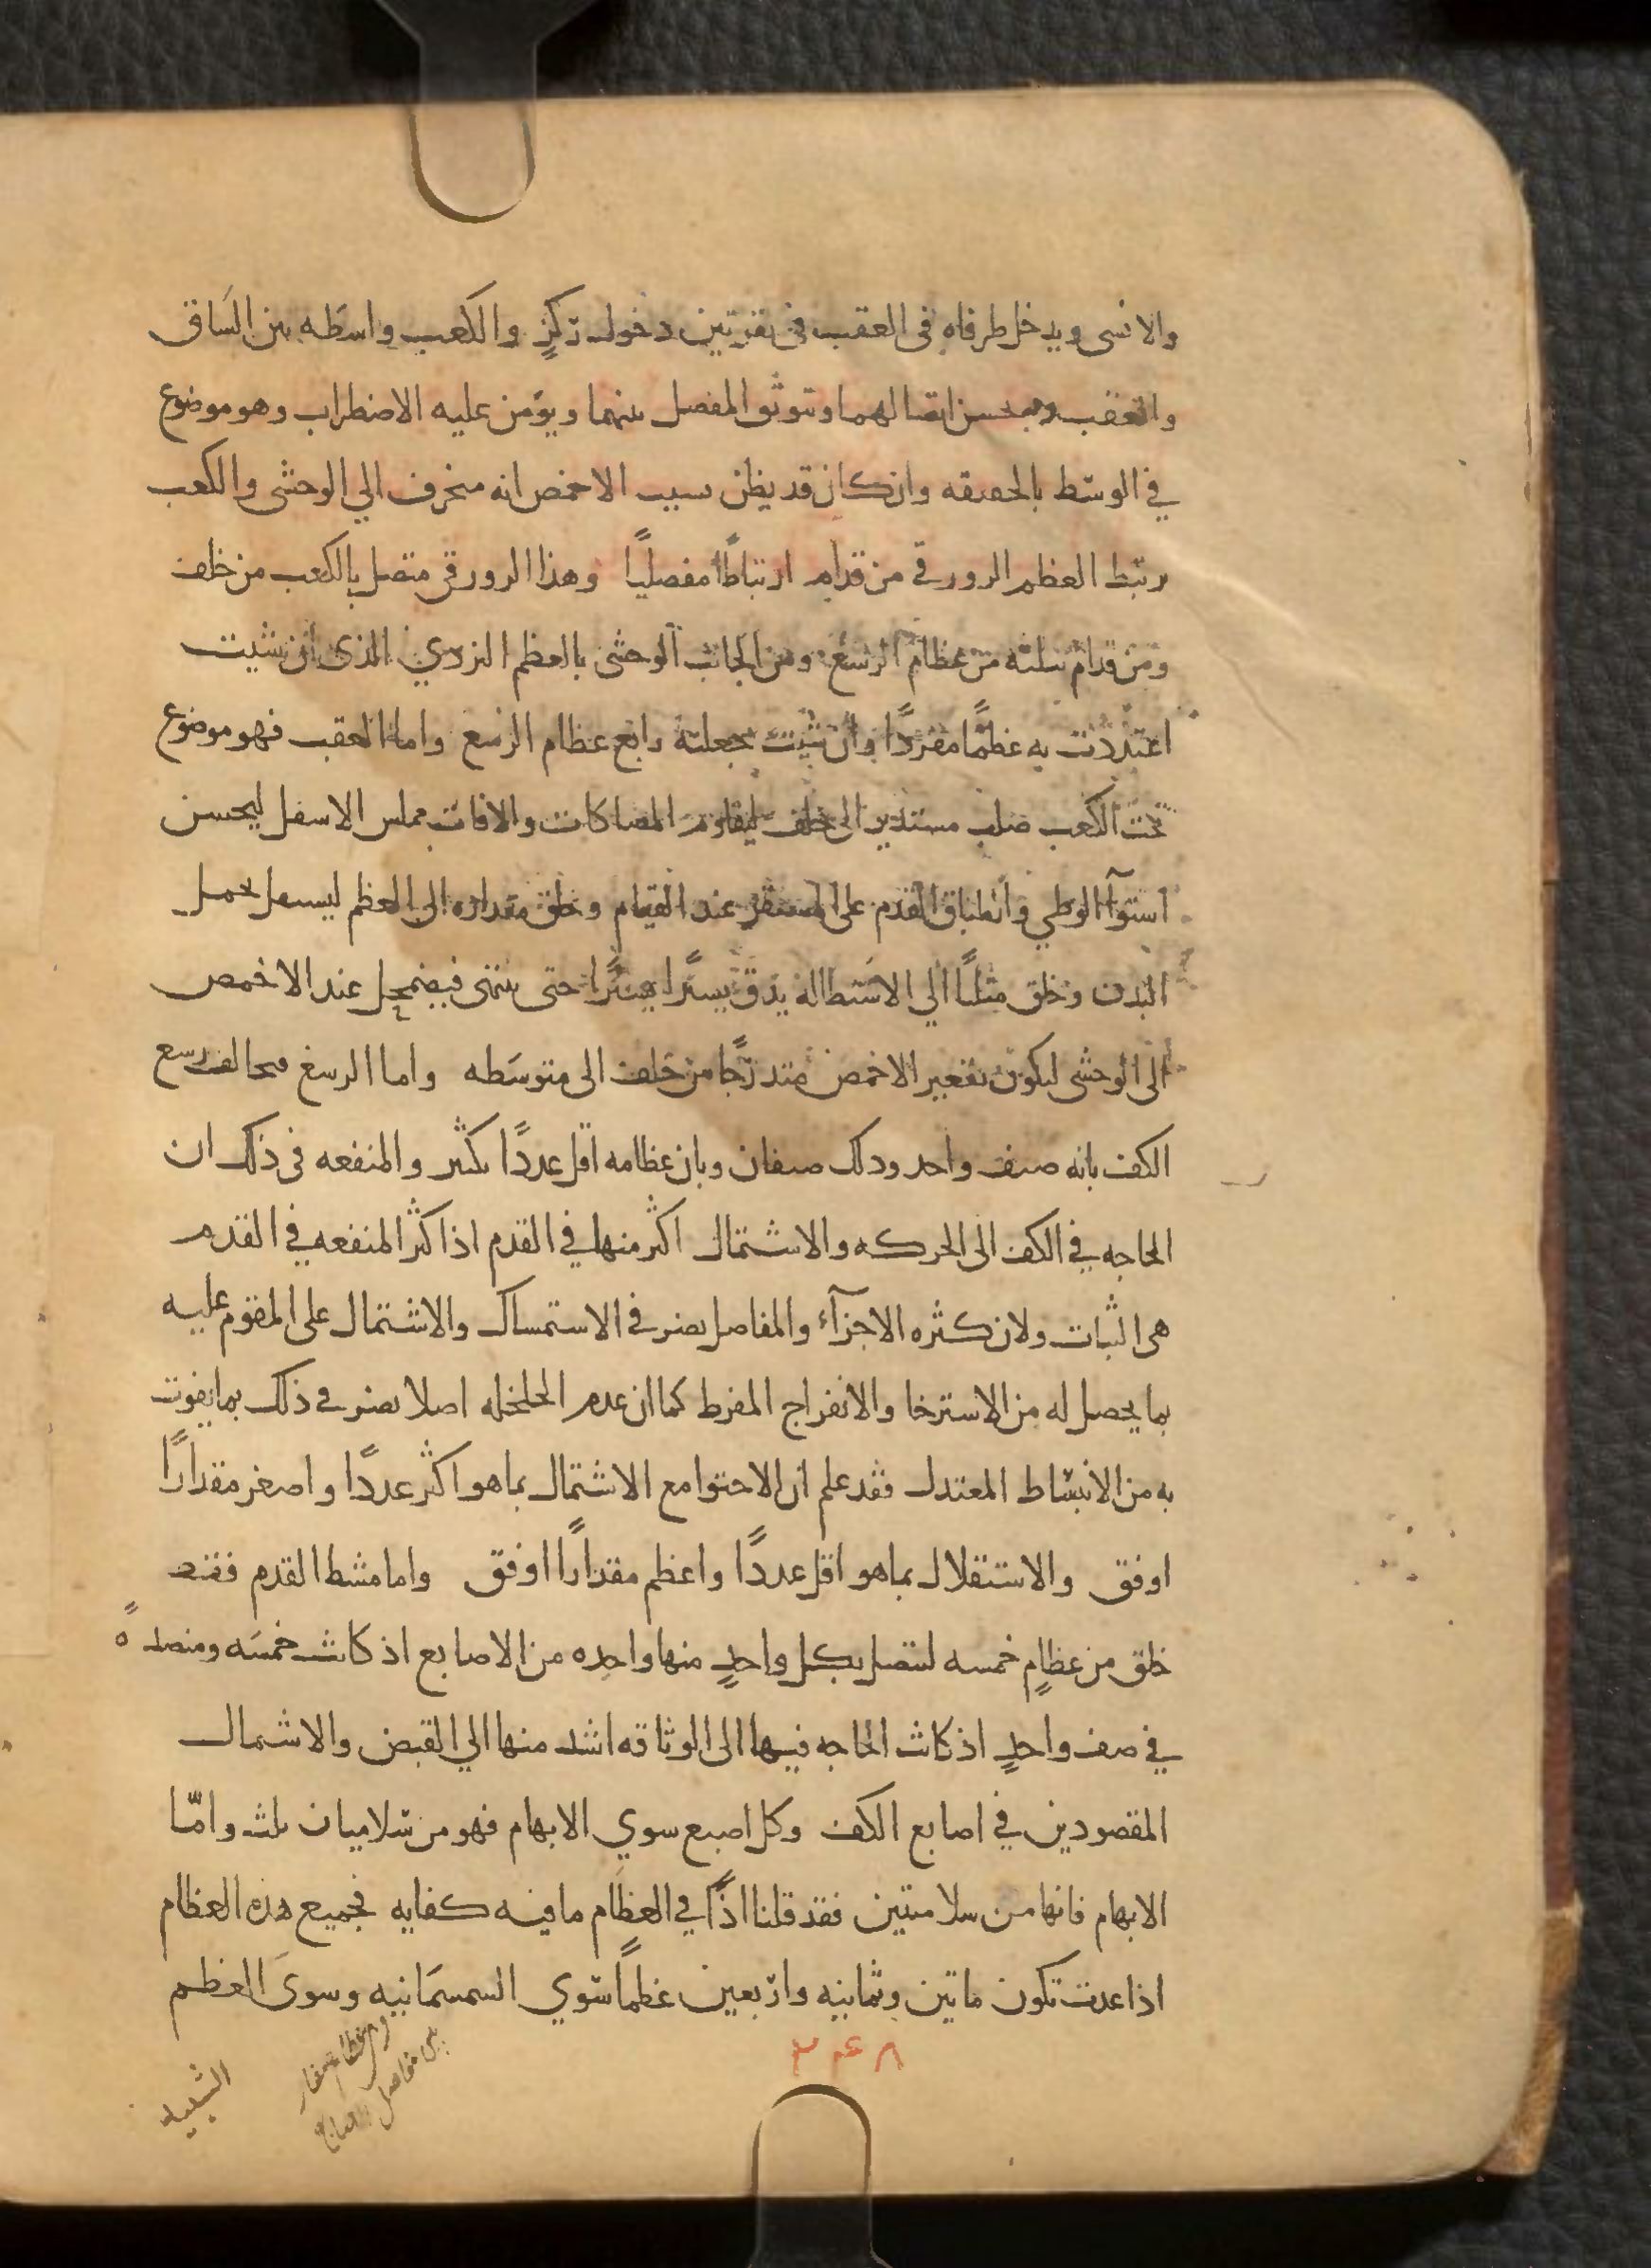 والانسى ويدخل طرفاه فى العقب فى نقرتين دخول ركزٍ والكعب واسطه بين الساق
والعقب وبه يحسن اتصالهما وتتوثق المفصل بينهما ويؤمن عليه الاضطراب وهو موضوع
في الوسط بالحقيقه وان كان قد يظن بسبب الاخمص انه منحرف الي الوحشى والكعب
يرتبط العظم الزورقي من قدام ارتباطًا مفصليًا وهذا الزورقى متصل بالكعب من خلف
ومن قدام بثلثه من عظام الرسغ ومن الجانب الوحشى بالعظم النردي الذى ان شيت
اعتددت به عظمًا مفردًا وان شيت جعلته رابع عظام الرسغ واما العقب فهو موضوع
تحت الكعب صلب مستدير الى خلف ليقاوم المصاكات والافات مملس الاسفل ليحسن
استوآ الوطي وانطباق القدم على المستقر عند القيام وخلق مقداره الى العظم ليستقل بحمل
البدن وخلق مثلثًا الي الاستطاله يدق يسيرًا يسيرًا حتى ينتهى فيضمحل عند الاخمص
الى الوحشى ليكون تقعير الاخمص متدرجًا من خلف الى متوسطه واما الرسغ فيخالف رسغ
الكف بانه صف واحد وذلك صفان وبان عظامه اقل عددًا بكثير والمنفعه فى ذلك ان
الحاجه في الكف الى الحركه والاشتمال اكثر منها في القدم اذ اكثر المنفعه في القدم
هى الثبات ولان كثره الاجزآء والمفاصل يضر فى الاستمساك والاشتمال على المقوم عليه
بما يحصل له من الاسترخا والانفراج المفرط كما ان عدم الخلخله اصلا يضر في ذلك بما يفوت
به من الانبساط المعتدل فقد علم ان الاحتوا مع الاشتمال بما هو اكثر عددًا واصغر مقدارًا
اوفق والاستقلال بما هو اقل عددًا واعظم مقدارًا اوفق واما مشط القدم فقد
خلق من عظامٍ خمسه لتتصل بكل واحدٍ منها واحده من الاصابع اذ كانت خمسَه ومنضدهً
في صف واحدٍ اذ كانت الحاجه فيها الى الوثاقه اشد منها الي القبض والاشتمال
المقصودين في اصابع الكف وكل اصبع سوي الابهام فهو من سلاميات ثلث وامّا
الابهام فانها من سلاميتين فقد قلنا اذًا في العظام ما فيه كفايه فجميع هذه العظام
اذا عدت تكون ماتين وثمانيه واربعين عظمًا سوي السمسمانيه وسوى العظم
٢٤٨
وهى عظام صغار
بين مفاصل الاصابع
الشبيه